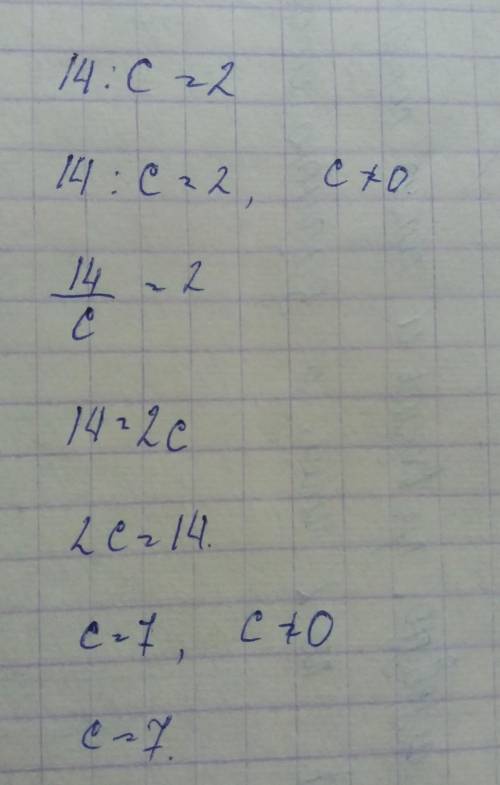 14 : C = 2
14 : C = 2, C ≠ 0.
14/C = 2
14 = 2C
2C = 14.
C = 7, C ≠ 0
C = 7.